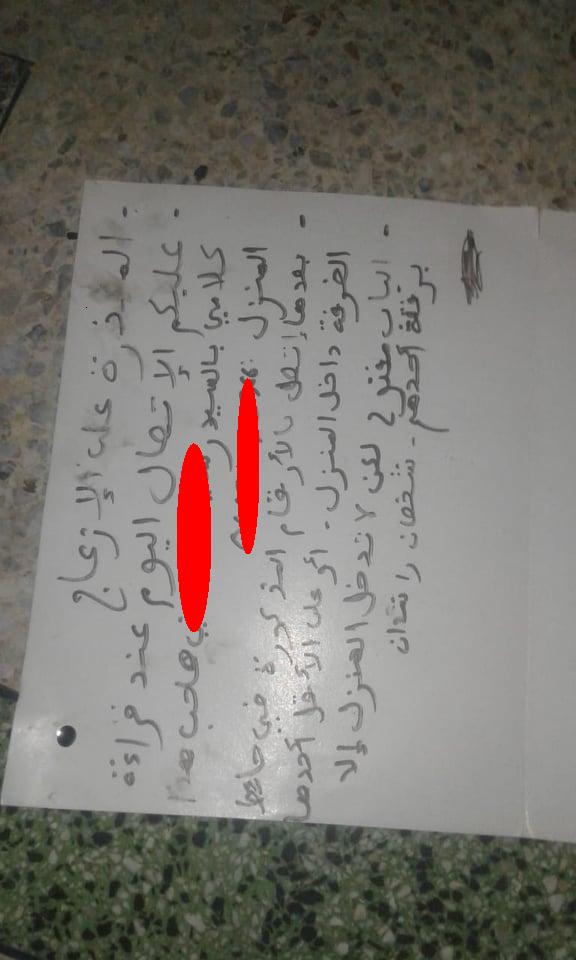 - المعذرة على الإزعاج
- عليكم الإتصال اليوم عند قراءة
كلامي بالسيد ر صاحب هذا
المنزل
- بعدها إتصل بالأرقام المذكورة في حائط
الغرفة داخل المنزل. أو على الأقل أحدها
- الباب مفتوح لكن لا تدخل المنزل إلا
برفقة أحدهم. شخصان راشدان